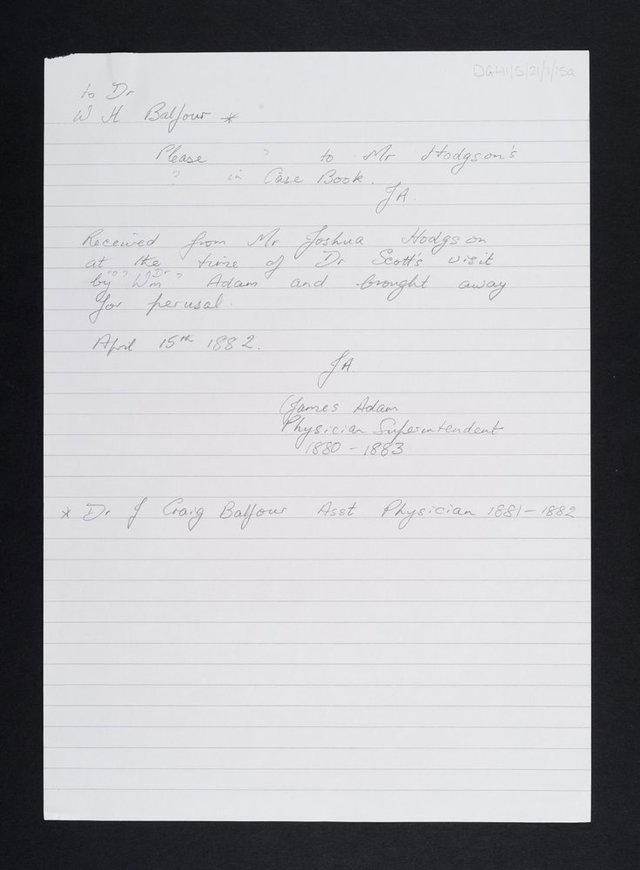 DGH1/5/21/1/15a
to Dr
W H Balfour *
Please ? to Mr Hodgson's
? in Case Book.
JA.
Received from Mr Joshua Hodgson
at the time of Dr Scott's visit
by "? Wm Dr ? Adam and brought away
for perusal.
April 15th 1882.
JA
(James Adam
Physician Superintendent
1880 - 1883
* Dr J Craig Balfour Asst Physician 1881 - 1882